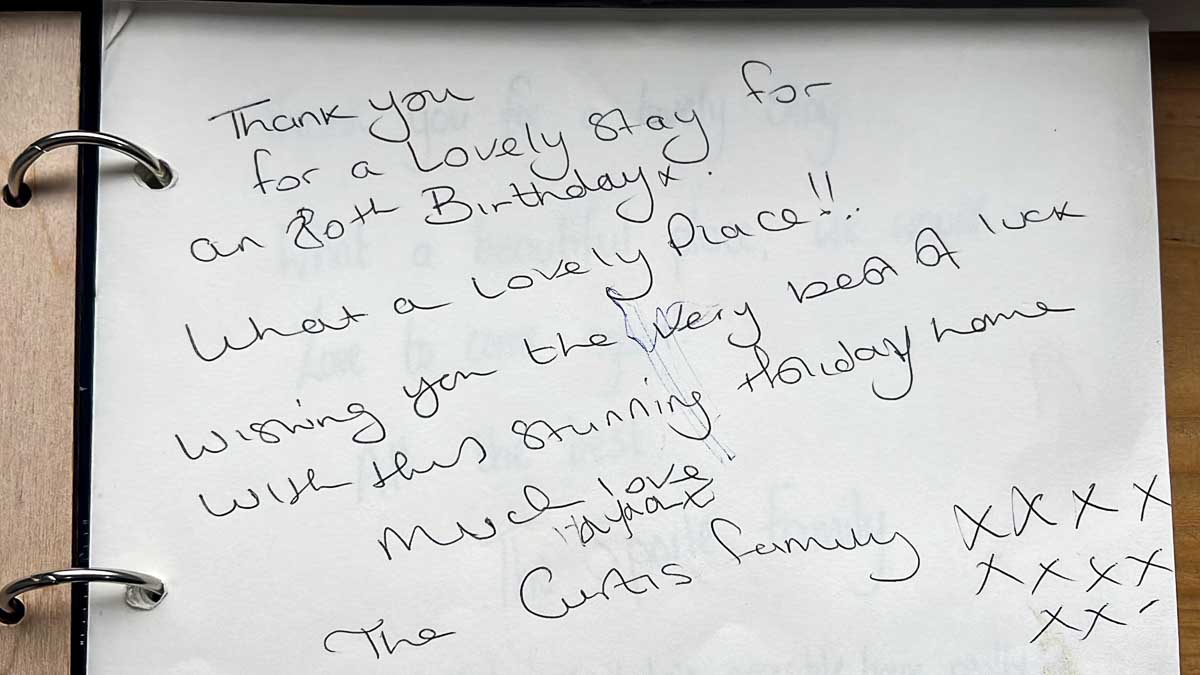 Thank you for
for a Lovely Stay
an 80th Birthday x.
What a Lovely Place!!.
Wishing you the very best of luck
with this stunning Holiday home
Much love
The Curtis family X X X X
X X X X
X X